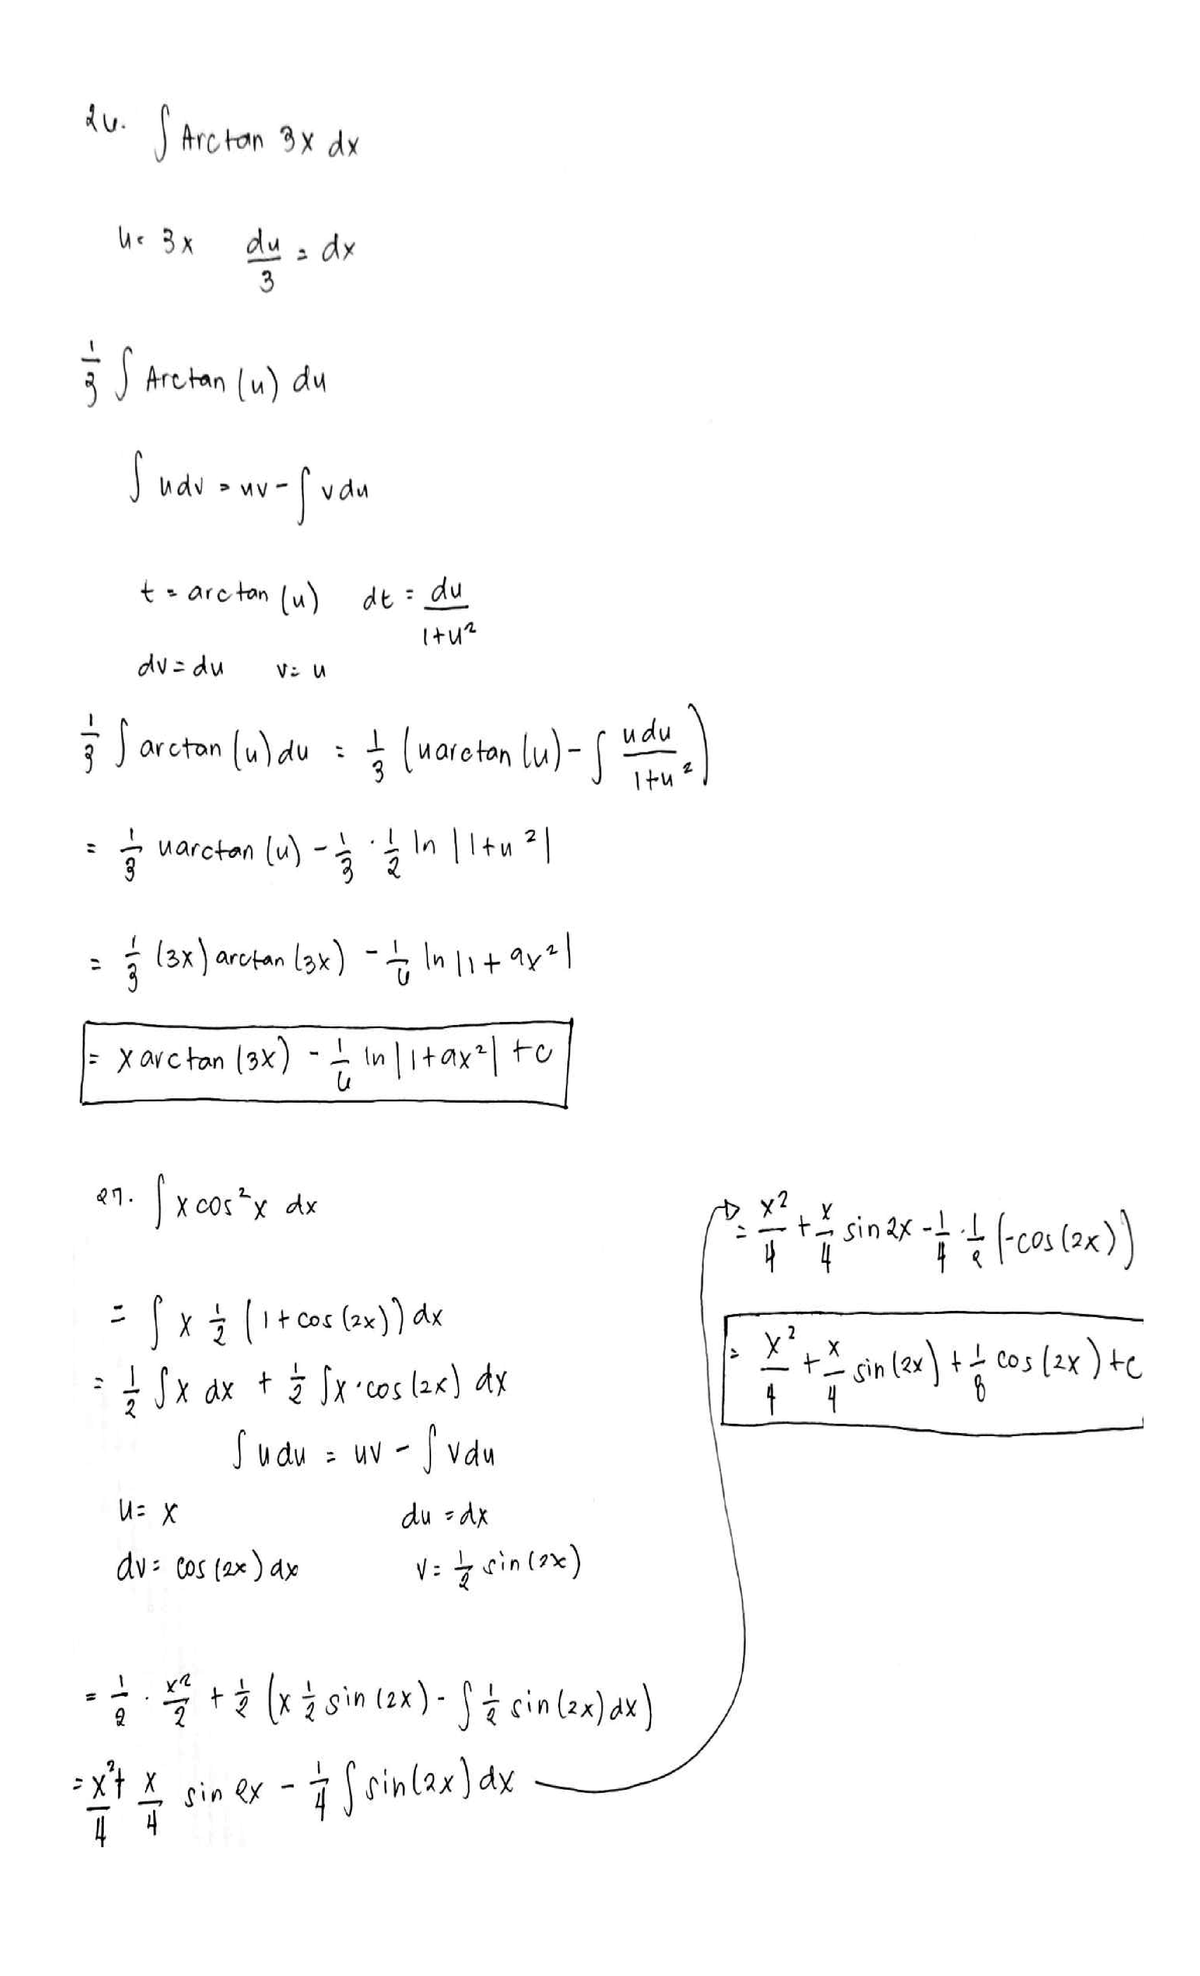 26. ∫ Arctan 3x dx
u = 3x du/3 = dx
1/3 ∫ Arctan (u) du
∫ udv = uv - ∫ vdu
t = arctan (u) dt = du/(1+u²)
dv = du v = u
1/3 ∫ arctan (u) du = 1/3 (uarctan (u) - ∫ udu/(1+u²))
= 1/3 uarctan (u) - 1/3 · 1/2 ln |1+u²|
= 1/3 (3x) arctan (3x) - 1/6 ln |1 + 9x²|
= x arctan (3x) - 1/6 ln |1+9x²| + c
27. ∫ x cos²x dx
= ∫ x 1/2 (1 + cos (2x)) dx
= 1/2 ∫ x dx + 1/2 ∫ x · cos (2x) dx
∫ udu = uv - ∫ vdu
u = x du = dx
dv = cos (2x) dx v = 1/2 sin (2x)
= 1/2 · x²/2 + 1/2 (x 1/2 sin (2x) - ∫ 1/2 sin (2x) dx)
= x²/4 + x/4 sin 2x - 1/4 ∫ sin (2x) dx
= x²/4 + x/4 sin 2x - 1/4 · 1/2 (-cos (2x))
= x²/4 + x/4 sin (2x) + 1/8 cos (2x) + c